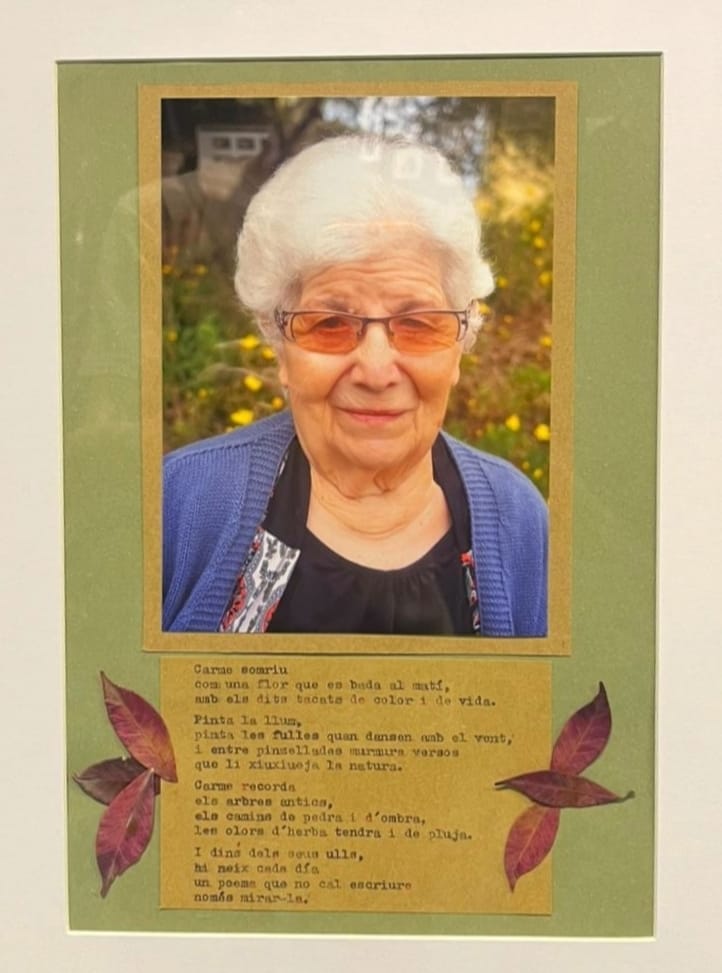 Carme somriu
com una flor que es bada al matí,
amb els dits tacats de color i de vida.
Pinta la llum,
pinta les fulles quan dansen amb el vent,
i entre pinzellades murmura versos
que li xiuxiueja la natura.
Carme recorda
els arbres antics,
els camins de pedra i d'ombra,
les olors d'herba tendra i de pluja.
I dins dels seus ulls,
hi neix cada dia
un poema que no cal escriure
només mirar-la.